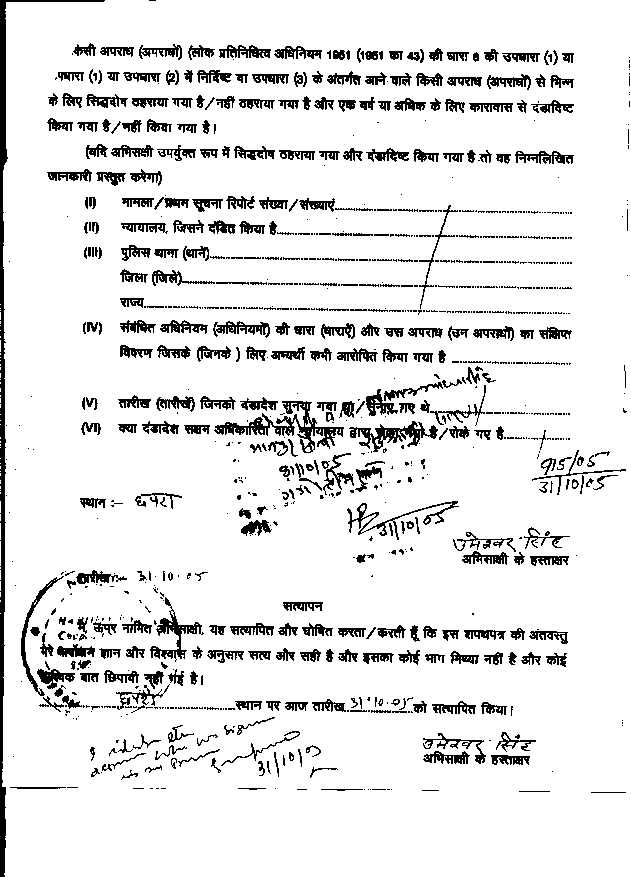 केसी अपराध (अपराधों) (लोक प्रतिनिधित्व अधिनियम 1951 (1951 का 43) की धारा 8 की उपधारा (1) या
पधारा (1) या उपधारा (2) में निर्दिष्ट या उपधारा (3) के अंतर्गत आने वाले किसी अपराध (अपराधों) से भिन्न
के लिए सिद्धदोष ठहराया गया है/नहीं ठहराया गया है और एक वर्ष या अधिक के लिए कारावास से दंडादिष्ट
किया गया है/नहीं किया गया है।
(यदि अभिसाक्षी उपर्युक्त रूप में सिद्धदोष ठहराया गया और दंडादिष्ट किया गया है तो वह निम्नलिखित
जानकारी प्रस्तुत करेगा)
(I) मामला/प्रथम सूचना रिपोर्ट संख्या/संख्याएं
(II) न्यायालय, जिसने दंडित किया है
(III) पुलिस थाना (थानें)
जिला (जिलें)
राज्य
(IV) संबंधित अधिनियम (अधिनियमों) की धारा (धाराऐं) और उस अपराध (उन अपराधों) का संक्षिप्त
विवरण जिसके (जिनके ) लिए अभ्यर्थी कभी आरोपित किया गया है
(V) तारीख (तारीखें) जिनको दंडादेश सुनया गया था/सुनाए गए थे
(VI) क्या दंडादेश सक्षम अधिकारिता वाले न्यायालय द्वारा रोका गया है/रोके गए है
31/10/05
915/05
31/10/05
स्थान :- छपरा
31/10/05
उमेश्वर सिंह
अभिसाक्षी के हस्ताक्षर
तारीख:- 31.10.05
सत्यापन
मैं, ऊपर नामित अभिसाक्षी, यह सत्यापित और घोषित करता/करती हूँ कि इस शपथपत्र की अंतवस्तु
मेरे सर्वोत्तम ज्ञान और विश्वास के अनुसार सत्य और सही है और इसका कोई भाग मिथ्या नहीं है और कोई
बात छिपायी नहीं गई है।
छपरा स्थान पर आज तारीख 31.10.05 को सत्यापित किया।
उमेश्वर सिंह
31/10/05
अभिसाक्षी के हस्ताक्षर